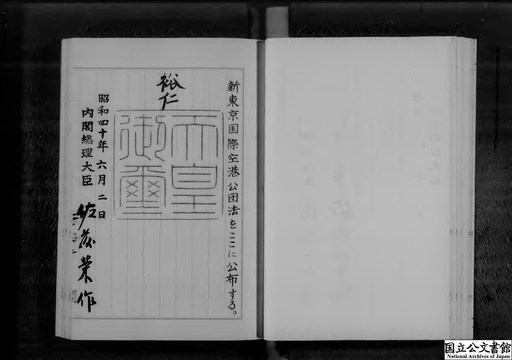 新東京国際空港公団法をここに公布する。
裕仁
天皇御璽
昭和四十年六月二日
内閣総理大臣
佐藤栄作
国立公文書館
National Archives of Japan